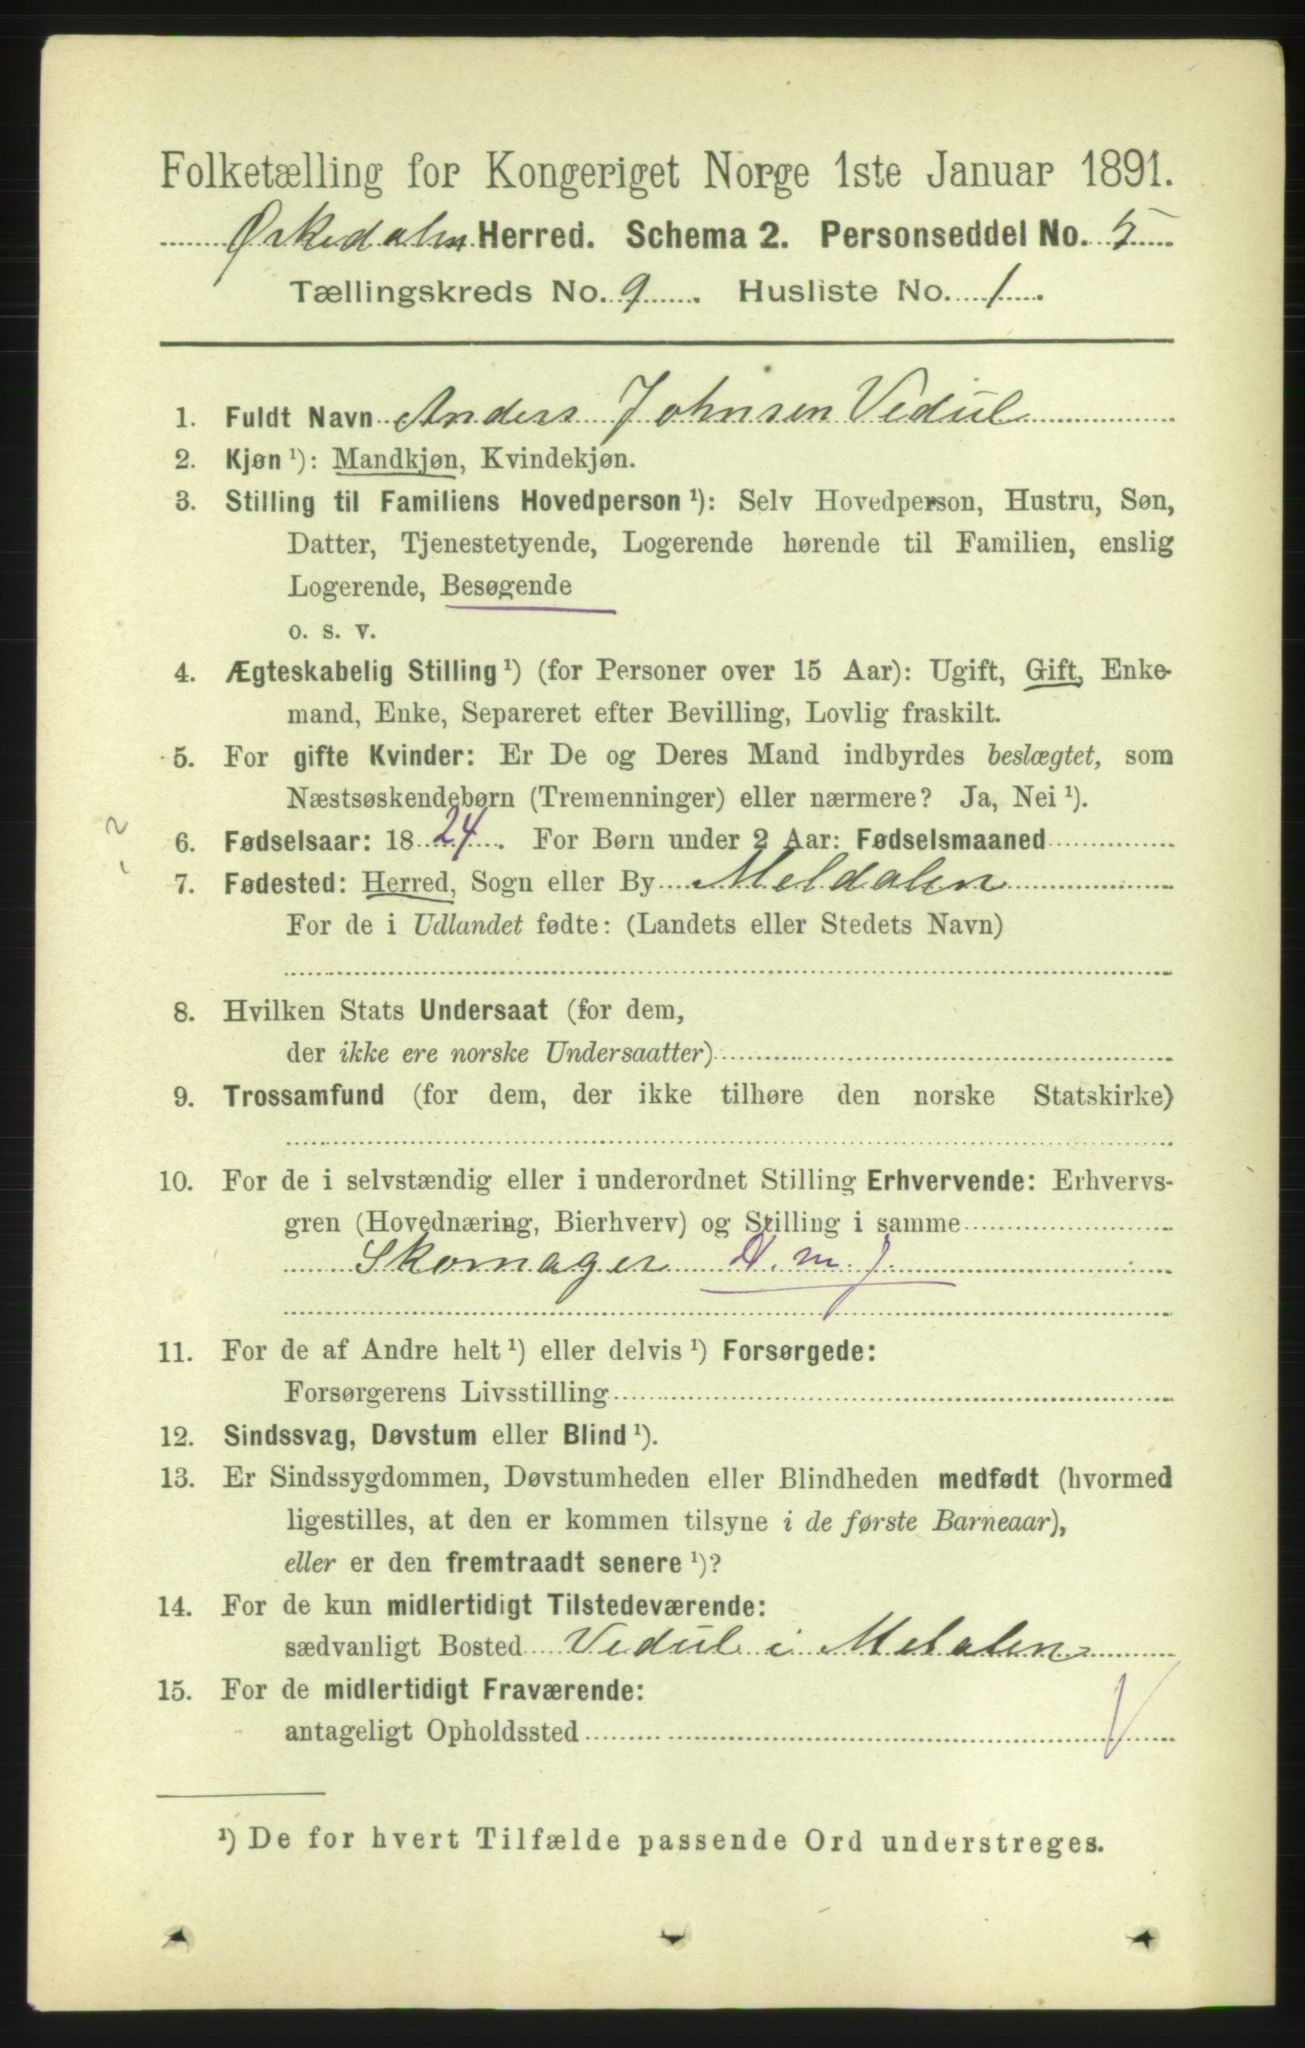 Folketælling for Kongeriget Norge 1ste Januar 1891.
Ørkedalen Herred. Schema 2. Personseddel No. 5
Tællingskreds No. 9. Husliste No. 1.
1. Fuldt Navn Anders Johnsen Vedul
2. Kjøn ¹): Mandkjøn, Kvindekjøn.
3. Stilling til Familiens Hovedperson ¹): Selv Hovedperson, Hustru, Søn,
Datter, Tjenestetyende, Logerende hørende til Familien, enslig
Logerende, Besøgende
o. s. v.
4. Ægteskabelig Stilling ¹) (for Personer over 15 Aar): Ugift, Gift, Enke-
mand, Enke, Separeret efter Bevilling, Lovlig fraskilt.
5. For gifte Kvinder: Er De og Deres Mand indbyrdes beslægtet, som
Næstsøskendebørn (Tremenninger) eller nærmere? Ja, Nei ¹).
6. Fødselsaar: 1824. For Børn under 2 Aar: Fødselsmaaned
7. Fødested: Herred, Sogn eller By Meldalen
For de i Udlandet fødte: (Landets eller Stedets Navn)
8. Hvilken Stats Undersaat (for dem,
der ikke ere norske Undersaatter)
9. Trossamfund (for dem, der ikke tilhøre den norske Statskirke)
10. For de i selvstændig eller i underordnet Stilling Erhvervende: Erhvervs-
gren (Hovednæring, Bierhverv) og Stilling i samme
Skomager H. m. f.
11. For de af Andre helt ¹) eller delvis ¹) Forsørgede:
Forsørgerens Livsstilling
12. Sindssvag, Døvstum eller Blind ¹).
13. Er Sindssygdommen, Døvstumheden eller Blindheden medfødt (hvormed
ligestilles, at den er kommen tilsyne i de første Barneaar),
eller er den fremtraadt senere ¹)?
14. For de kun midlertidigt Tilstedeværende:
sædvanligt Bosted Vedul i Melalen
15. For de midlertidigt Fraværende:
antageligt Opholdssted
¹) De for hvert Tilfælde passende Ord understreges.